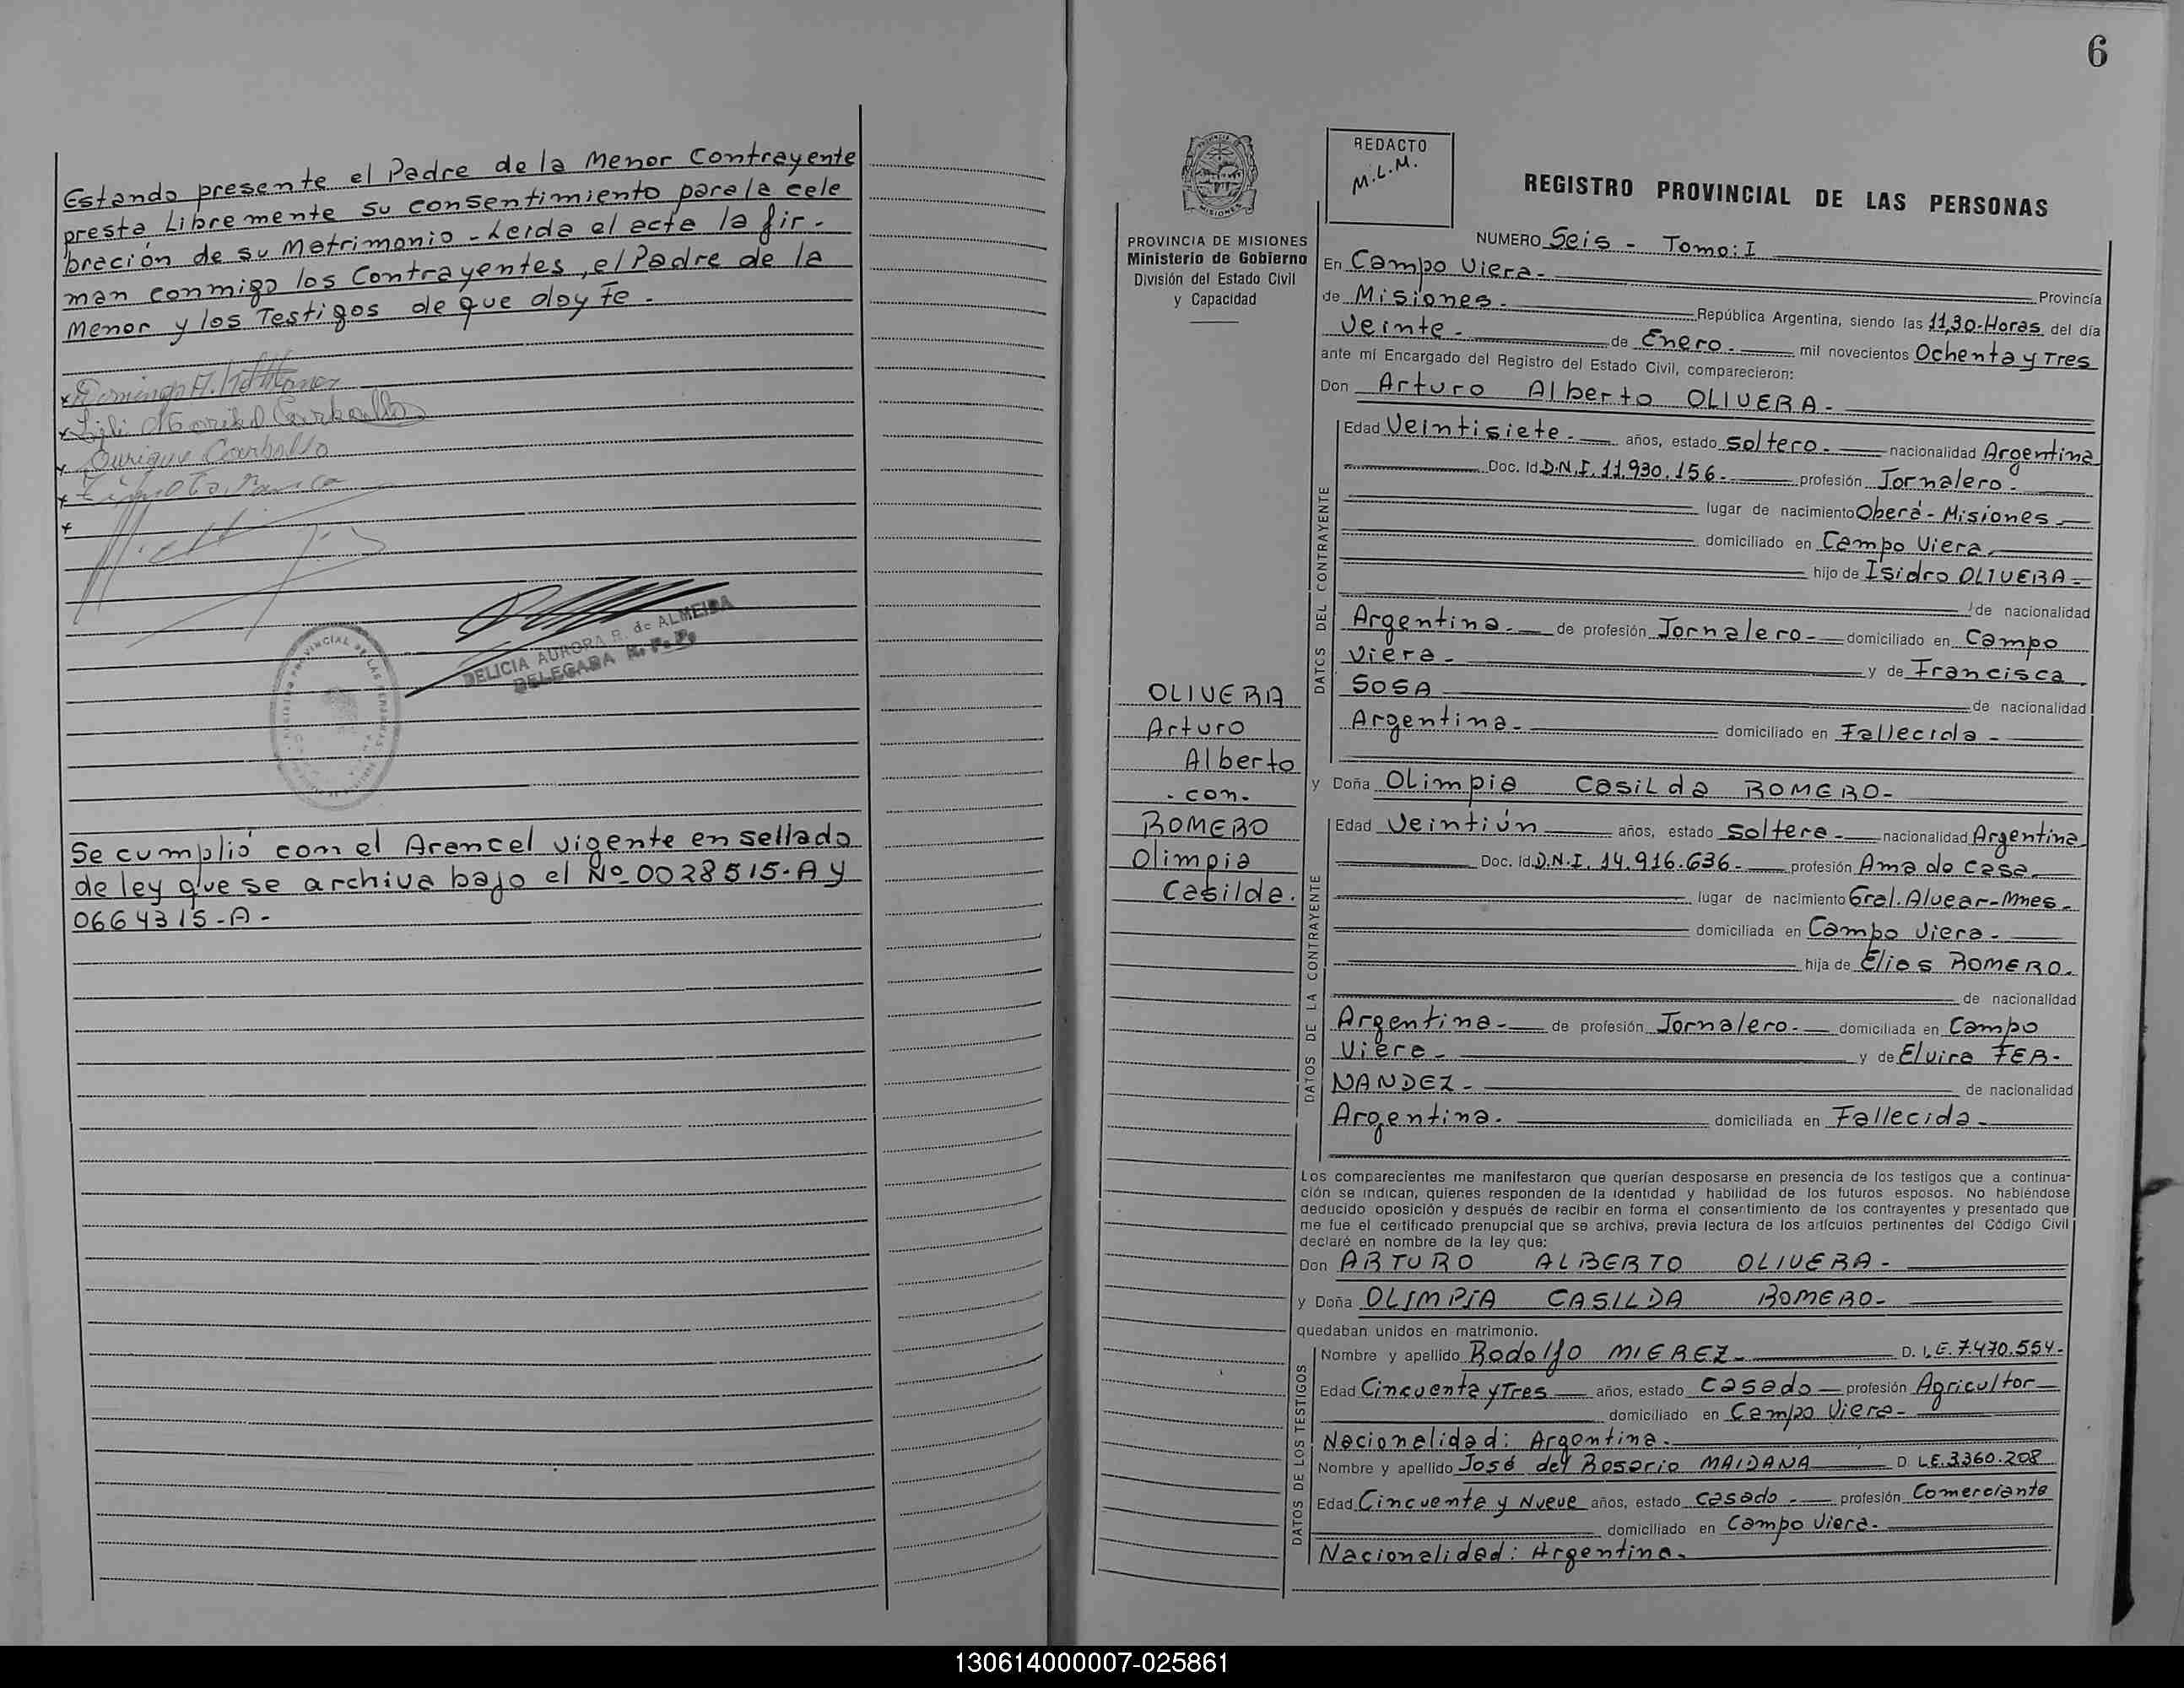 Estando presente el Padre de la Menor Contrayente
presta Libremente su consentimiento para la cele
bración de su Matrimonio - Leida el acta la fir-
man conmigo los Contrayentes, el Padre de la
Menor y los Testigos de que doy Fe.
Enrique Carballo
DELICIA AURORA R. de ALMEIDA
DELEGADA R. P. P.
Se cumplió con el Arancel vigente en sellado
de ley que se archiva bajo el Nº 0028515-A y
0664315-A-
6
REDACTO
M.L.M.
REGISTRO PROVINCIAL DE LAS PERSONAS
PROVINCIA DE MISIONES
Ministerio de Gobierno
División del Estado Civil
y Capacidad
OLIVERA
Arturo
Alberto
- con -
ROMERO
Olimpia
Casilda.
NUMERO Seis - Tomo: I
En Campo Viera - Provincia
de Misiones - República Argentina, siendo las 11,30-Horas del día
Veinte - de Enero - mil novecientos Ochenta y Tres
ante mí Encargado del Registro del Estado Civil, comparecieron:
Don Arturo Alberto OLIVERA -
DATOS DEL CONTRAYENTE
Edad Veintisiete - años, estado soltero - nacionalidad Argentina
Doc. Id D.N.I. 11.930.156 - profesión Jornalero -
lugar de nacimiento Oberá - Misiones -
domiciliado en Campo Viera -
hijo de Isidro OLIVERA -
de nacionalidad
Argentina - de profesión Jornalero - domiciliado en Campo
Viera - y de Francisca
SOSA de nacionalidad
Argentina - domiciliado en Fallecida -
y Doña Olimpia Casilda ROMERO -
DATOS DE LA CONTRAYENTE
Edad Veintiún años, estado soltera - nacionalidad Argentina
Doc. Id. D.N.I. 14.916.636 - profesión Ama de casa -
lugar de nacimiento Gral. Alvear - Mnes -
domiciliada en Campo Viera -
hija de Elios ROMERO.
de nacionalidad
Argentina - de profesión Jornalero - domiciliada en Campo
Viera - y de Elvira FER-
NANDEZ - de nacionalidad
Argentina. domiciliada en Fallecida -
Los comparecientes me manifestaron que querían desposarse en presencia de los testigos que a continua-
ción se indican, quienes responden de la identidad y habilidad de los futuros esposos. No habiéndose
deducido oposición y después de recibir en forma el consentimiento de los contrayentes y presentado que
me fue el certificado prenupcial que se archiva, previa lectura de los artículos pertinentes del Código Civil
declaré en nombre de la ley que:
Don ARTURO ALBERTO OLIVERA -
y Doña OLIMPIA CASILDA ROMERO -
quedaban unidos en matrimonio.
DATOS DE LOS TESTIGOS
Nombre y apellido Rodolfo MIEREZ - D. L.E. 7.470.554 -
Edad Cincuenta y Tres años, estado casado - profesión Agricultor
domiciliado en Campo Viera -
Nacionalidad: Argentina -
Nombre y apellido José del Rosario MAIDANA D L.E. 3.360.208
Edad Cincuenta y Nueve años, estado casado - profesión Comerciante
domiciliado en Campo Viera -
Nacionalidad: Argentina -
130614000007-025861